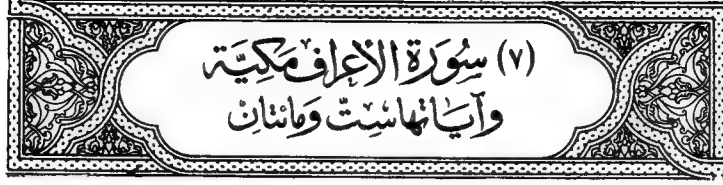 (٧) سُورَة الأعراف مَكيَّة
وَآيَاتها سِتّ وَمائتان